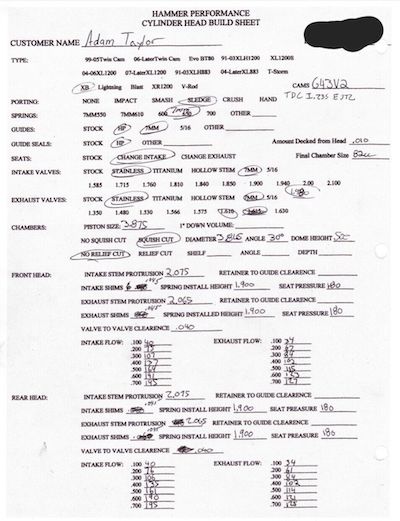 HAMMER PERFORMANCE
CYLINDER HEAD BUILD SHEET
CUSTOMER NAME Adam Taylor
TYPE: 99-05Twin Cam 06-LaterTwin Cam Evo BT80 91-03XLH1200 XL1200S
04-06XL1200 07-LaterXL1200 91-03XLH883 04-LaterXL883 T-Storm
XB Lightning Blast XR1200 V-Rod
CAMS 643V2
TDC I .235 E .172
PORTING: NONE IMPACT SMASH SLEDGE CRUSH HAND
SPRINGS: 7MM550 7MM610 600 7MM650 700 OTHER
GUIDES: STOCK HP 7MM 5/16 OTHER
GUIDE SEALS: STOCK HP OTHER Amount Decked from Head .010
SEATS: STOCK CHANGE INTAKE CHANGE EXHAUST Final Chamber Size 82cc
INTAKE VALVES: STOCK STAINLESS TITANIUM HOLLOW STEM 7MM 5/16
1.585 1.715 1.760 1.810 1.840 1.850 1.900 1.940 2.00 2.100
1.980
EXHAUST VALVES: STOCK STAINLESS TITANIUM HOLLOW STEM 7MM 5/16
1.350 1.480 1.530 1.566 1.575 1.610 1.630
CHAMBERS: PISTON SIZE: 3.875 1" DOWN VOLUME:
NO SQUISH CUT SQUISH CUT DIAMETER 3.865 ANGLE 30° DOME HEIGHT
NO RELIEF CUT RELIEF CUT SHELF ANGLE DEPTH
FRONT HEAD: INTAKE STEM PROTRUSION 2.075 RETAINER TO GUIDE CLEARENCE
INTAKE SHIMS .045 SPRING INSTALL HEIGHT 1.900 SEAT PRESSURE 180
EXHAUST STEM PROTRUSION 2.065 RETAINER TO GUIDE CLEARENCE
EXHAUST SHIMS .045 SPRING INSTALLED HEIGHT 1.900 SEAT PRESSURE 180
VALVE TO VALVE CLEARENCE .040
INTAKE FLOW: .100 40 EXHAUST FLOW: .100 34
.200 .200
.300 107 .300
.400 137 .400
.500 164 .500
.600 191 .600 123
.700 195 .700 127
REAR HEAD: INTAKE STEM PROTRUSION 2.075 RETAINER TO GUIDE CLEARENCE
INTAKE SHIMS SPRING INSTALL HEIGHT 1.900 SEAT PREASURE 180
EXHAUST STEM PROTRUSION 2.065 RETAINER TO GUIDE CLEARENCE
EXHAUST SHIMS SPRING INSTALL HEIGHT 1.900 SEAT PRESSURE 180
VALVE TO VALVE CLEARENCE .040
INTAKE FLOW: .100 40 EXHAUST FLOW: .100 34
.200 76 .200 61
.300 106 .300 84
.400 135 .400 102
.500 161 .500 114
.600 190 .600 121
.700 195 .700 125